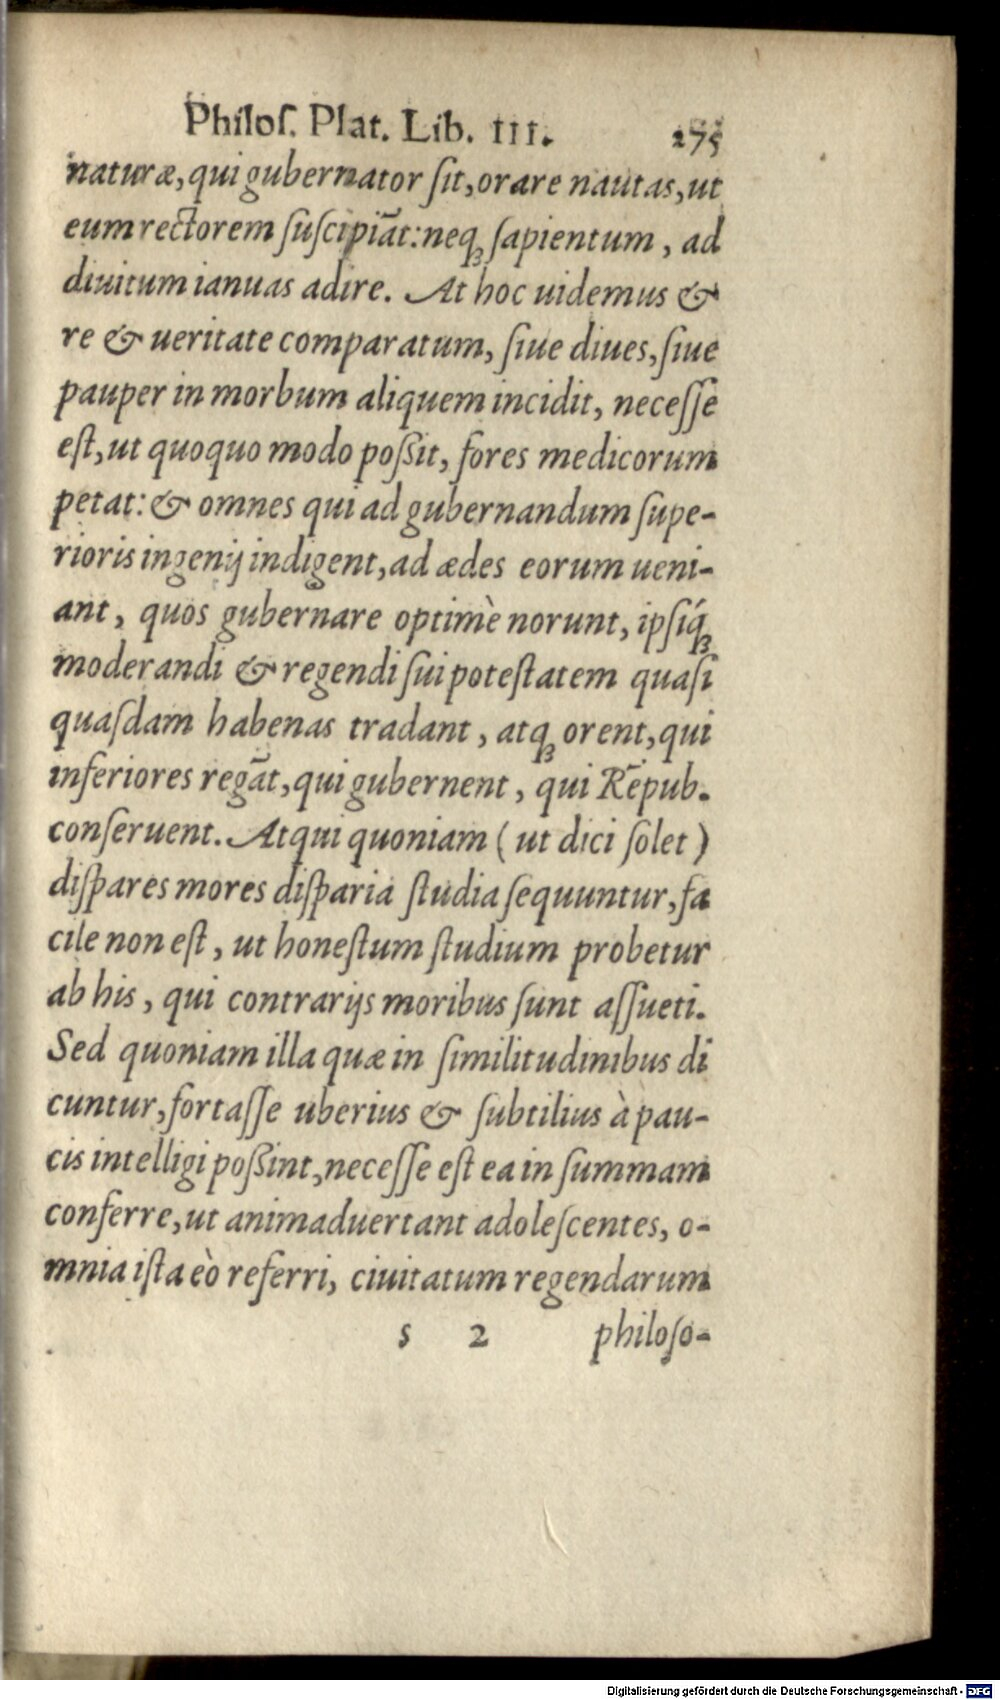 Philoſ. Plat. Lib. III. 275
naturæ, qui gubernator ſit, orare nautas, ut
eum rectorem ſuſcipiãt: neqꝫ ſapientum, ad
diuitum ianuas adire. At hoc uidemus &
re & ueritate comparatum, ſiue diues, ſiue
pauper in morbum aliquem incidit, neceſſe
eſt, ut quoquo modo poßit, fores medicorum
petat: & omnes qui ad gubernandum ſupe-
rioris ingenij indigent, ad ædes eorum ueni-
ant, quos gubernare optimè norunt, ipſíqꝫ
moderandi & regendi ſui poteſtatem quaſi
quaſdam habenas tradant, atqꝫ orent, qui
inferiores regãt, qui gubernent, qui Rēpub.
conſeruent. Atqui quoniam (ut dici ſolet)
diſpares mores diſparia ſtudia ſequuntur, fa
cile non eſt, ut honeſtum ſtudium probetur
ab his, qui contrarijs moribus ſunt aſſueti.
Sed quoniam illa quæ in ſimilitudinibus di
cuntur, fortaſſe uberius & ſubtilius à pau-
cis intelligi poßint, neceſſe eſt ea in ſummam
conferre, ut animaduertant adoleſcentes, o-
mnia iſta eò referri, ciuitatum regendarum
s 2 philoſo-
Digitalisierung gefördert durch die Deutsche Forschungsgemeinschaft - DFG